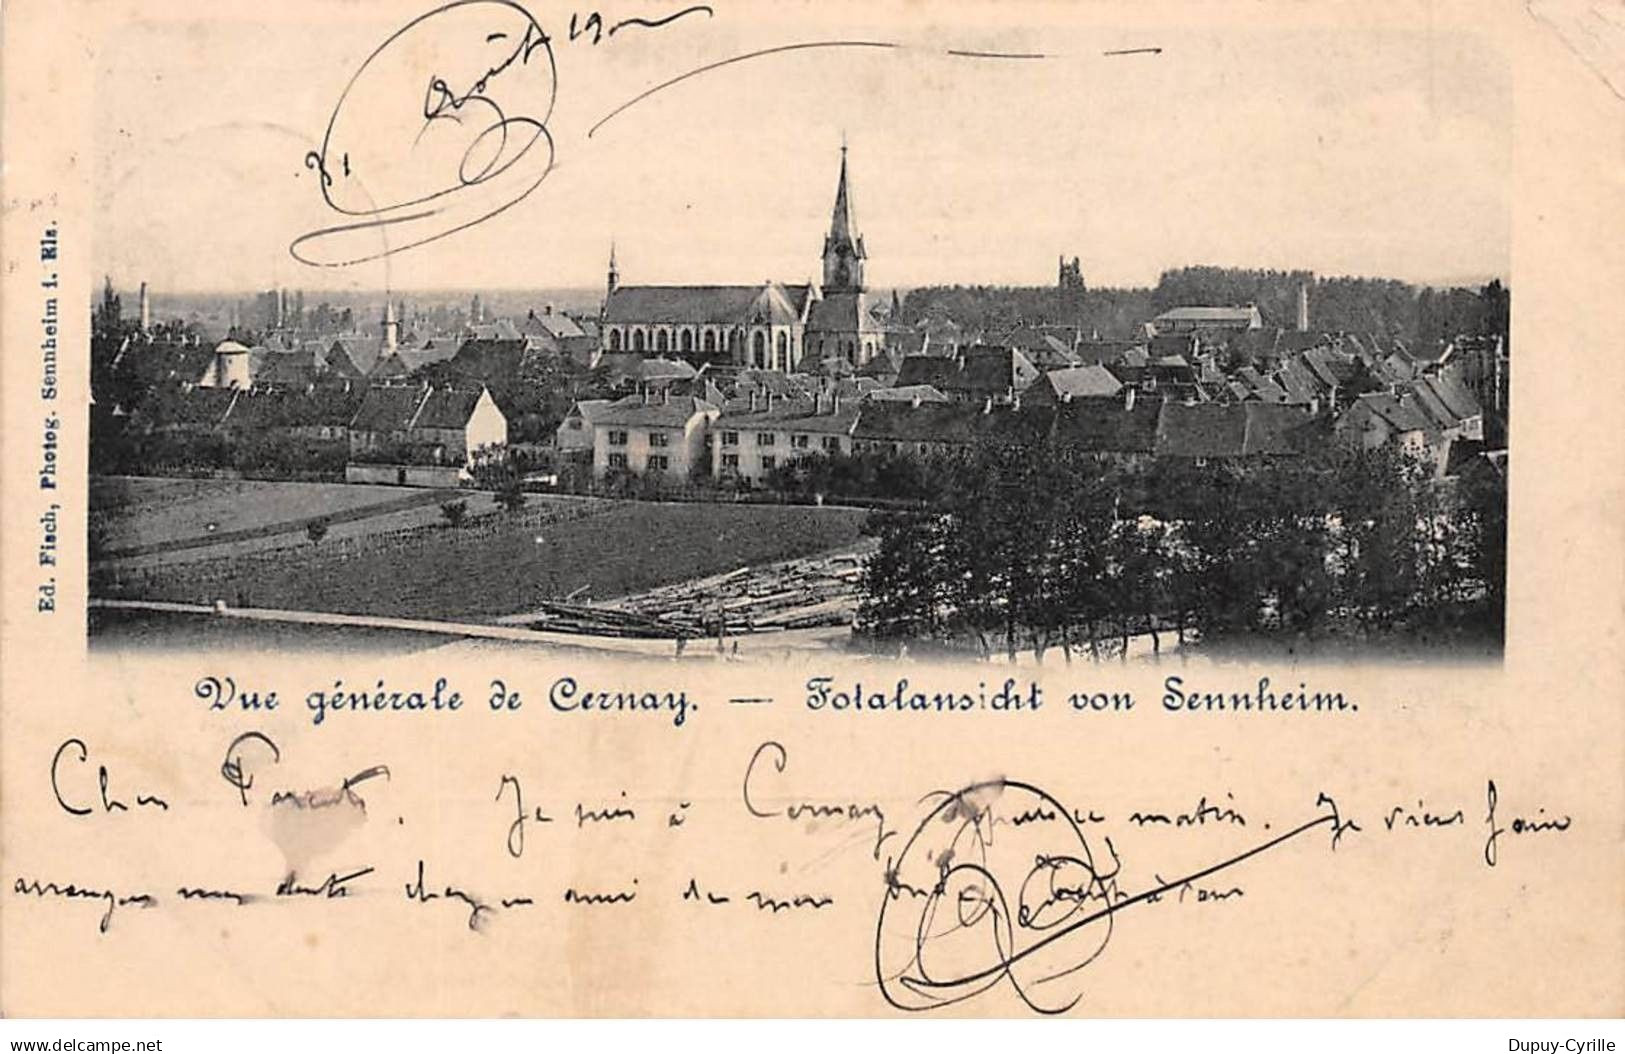 31 Août 190
Ed. Fisch, Photog. Sennheim i. Els.
Vue générale de Cernay. — Totalansicht von Sennheim.
Cher Parents. Je suis à Cernay depuis ce matin. Je viens faire
arranger mes dents chez un ami de mon
delcampe.net
Dupuy-Cyrille